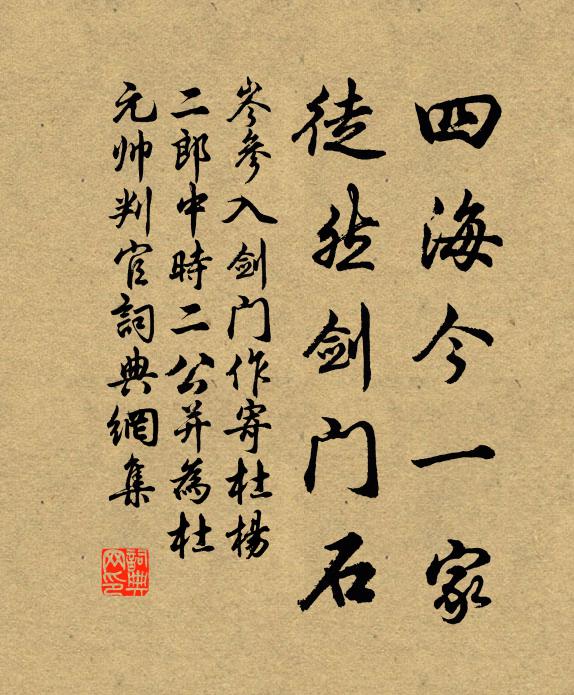 四海今一家
徒然剑门石
岑参入剑门作寄杜楊
二郎中時二公并為杜
元帅判官詞典網集
詞典
网印